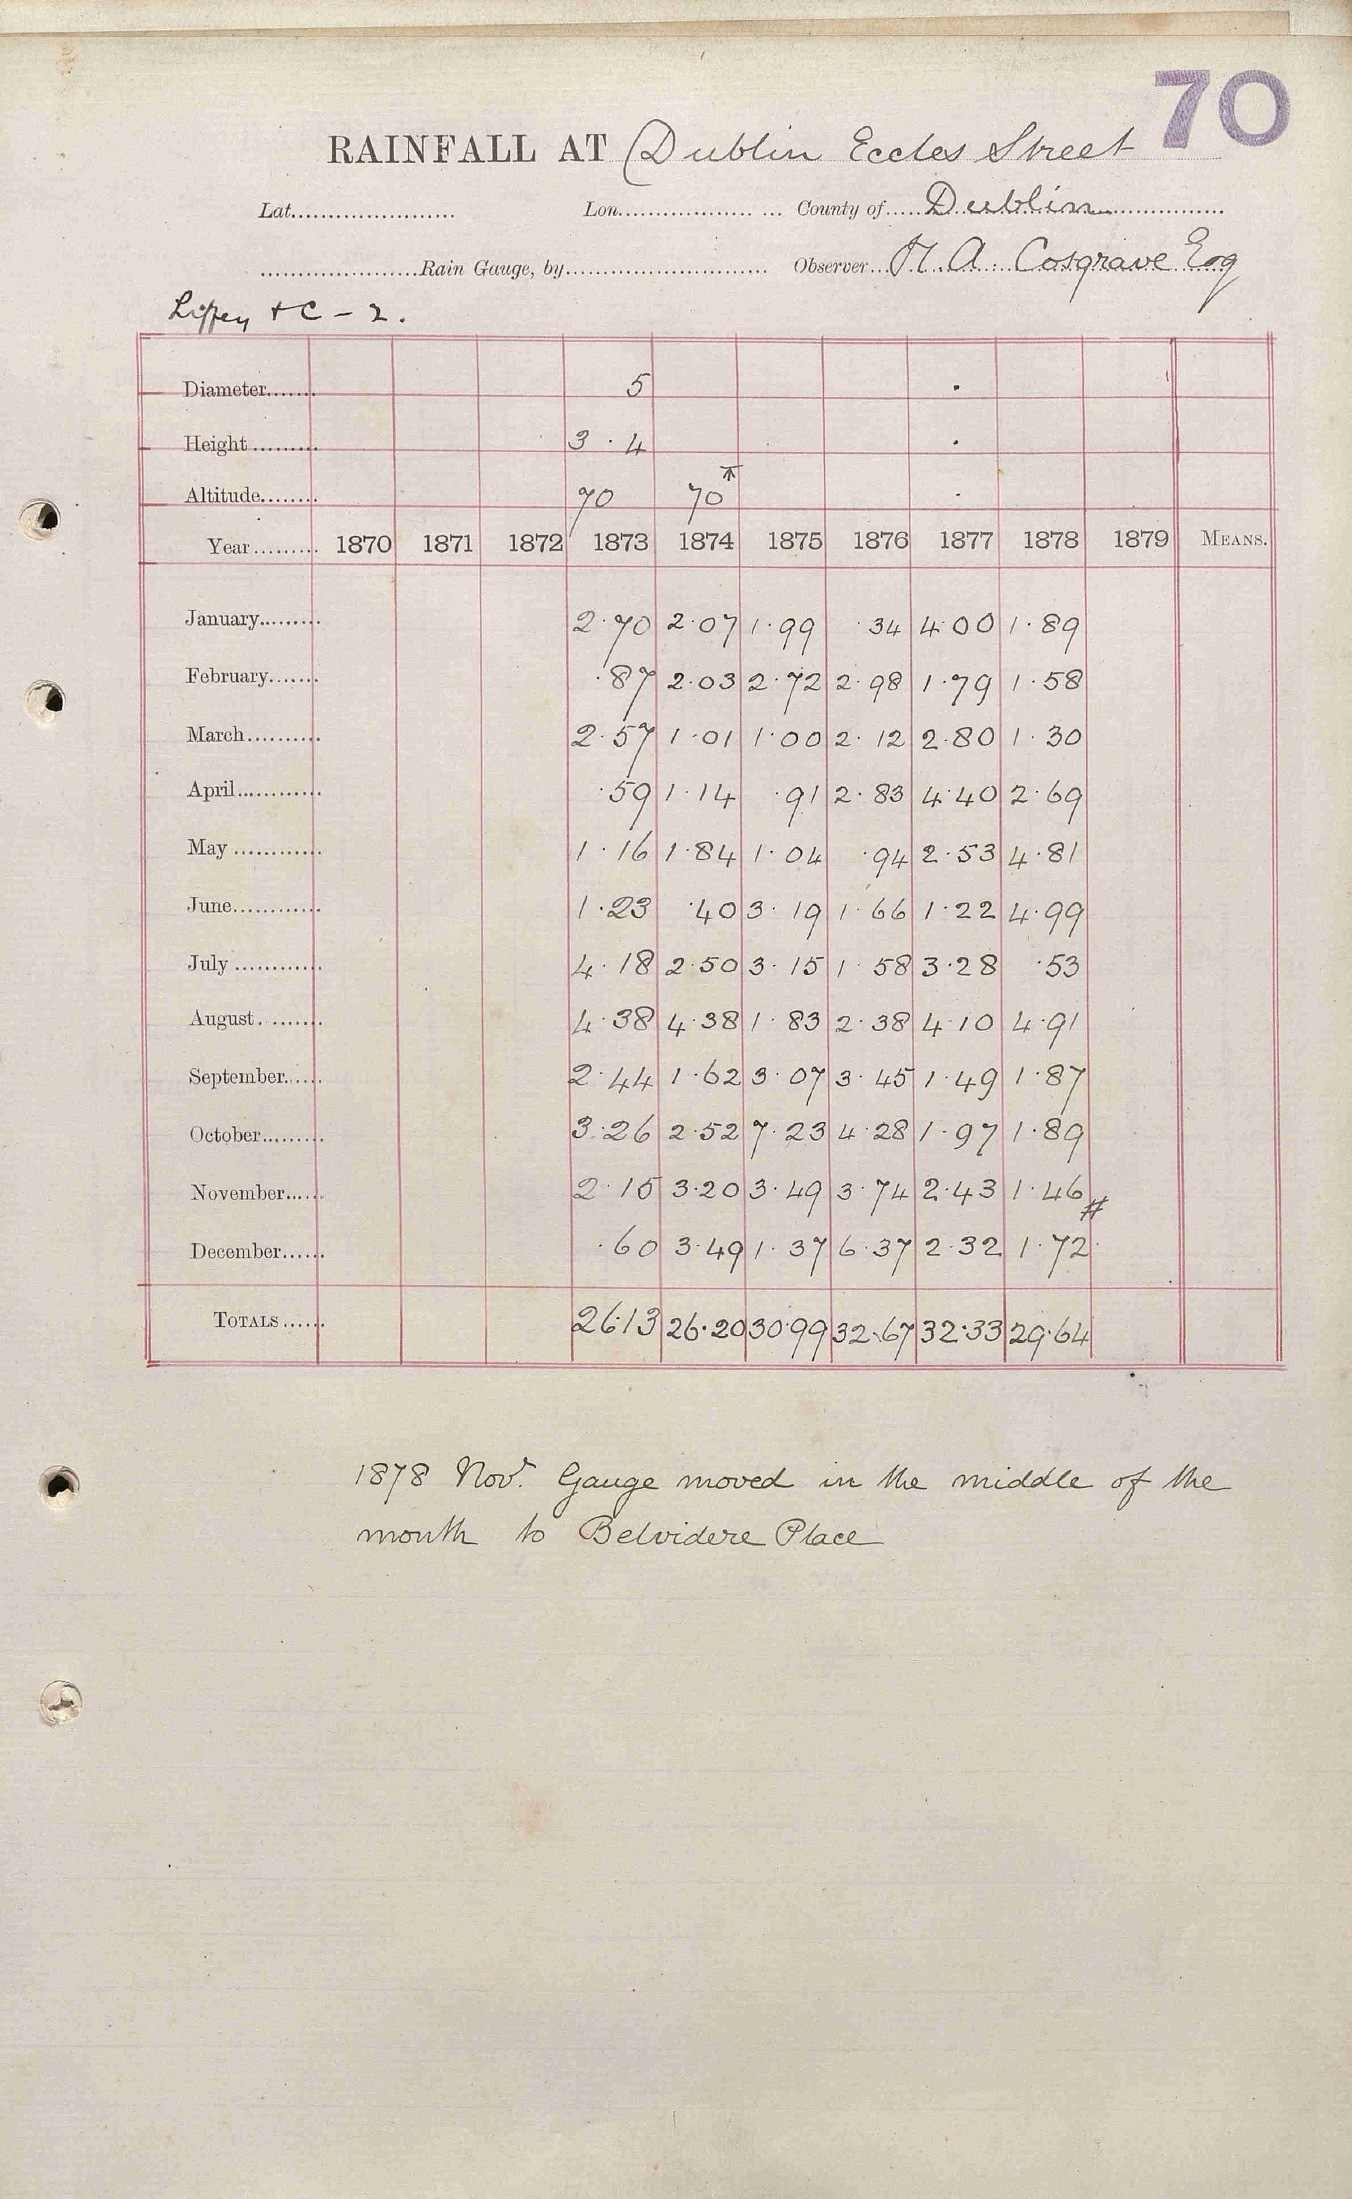 70
RAINFALL AT Dublin Eccles Street
Lat. Lon. County of Dublin
Rain Gauge, by Observer A. Cosgrave Esq
Liffey + C - 2.
Diameter 5
Height 3 · 4
Altitude 70 70
Year 1870 1871 1872 1873 1874 1875 1876 1877 1878 1879 MEANS.
January 2·70 2·07 1·99 ·34 4·00 1·89
February ·87 2·03 2·72 2·98 1·79 1·58
March 2·57 1·01 1·00 2·12 2·80 1·30
April ·59 1·14 ·91 2·83 4·40 2·69
May 1·16 1·84 1·04 ·94 2·53 4·81
June 1·23 ·40 3·19 1·66 1·22 4·99
July 4·18 2·50 3·15 1·58 3·28 ·53
August 4·38 4·38 1·83 2·38 4·10 4·91
September 2·44 1·62 3·07 3·45 1·49 1·87
October 3·26 2·52 7·23 4·28 1·97 1·89
November 2·15 3·20 3·49 3·74 2·43 1·46 #
December ·60 3·49 1·37 6·37 2·32 1·72
TOTALS 26·13 26·20 30·99 32·67 32·33 29·64
1878 Nov. Gauge moved in the middle of the
month to Belvidere Place